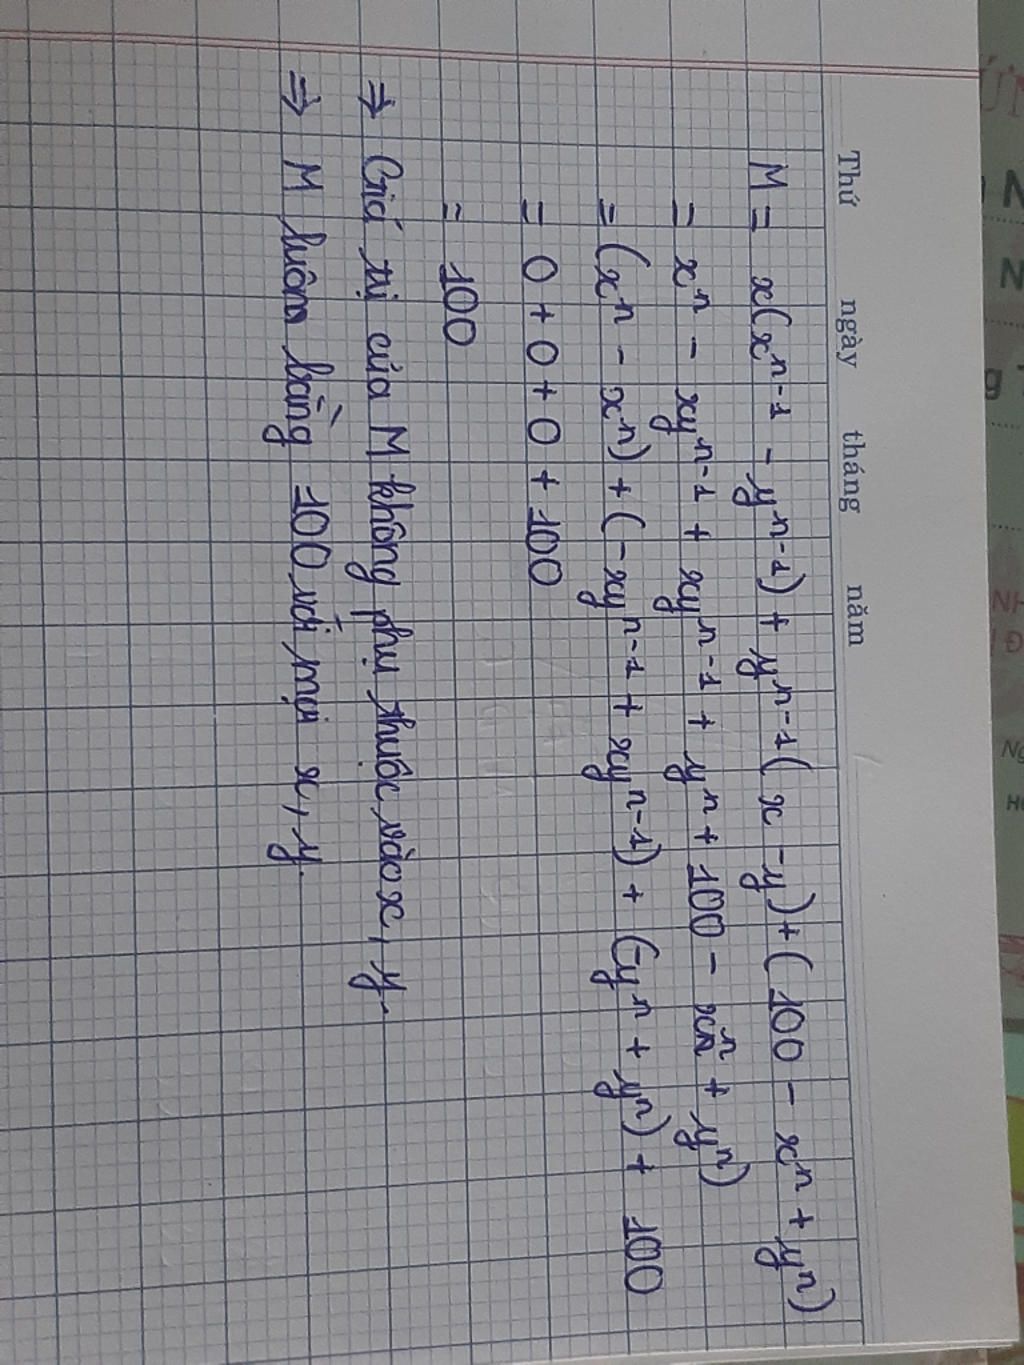 Thứ ngày tháng năm
M = x(xⁿ⁻¹ - yⁿ⁻¹) + yⁿ⁻¹( x - y) + ( 100 - xⁿ + yⁿ)
= xⁿ - xyⁿ⁻¹ + xyⁿ⁻¹ + yⁿ + 100 - xⁿ + yⁿ)
= (xⁿ - xⁿ) + (- xyⁿ⁻¹ + xyⁿ⁻¹) + (-yⁿ + yⁿ) + 100
= 0 + 0 + 0 + 100
= 100
⇒ Giá trị của M không phụ thuộc vào x, y.
⇒ M luôn bằng 100 với mọi x, y.